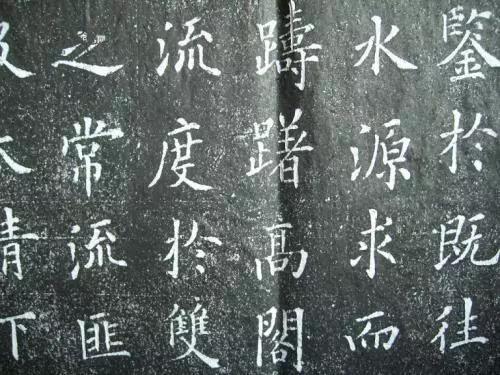 鑒於既往
水源求而
躊躇高閣
流度於雙
之常流匪
及下